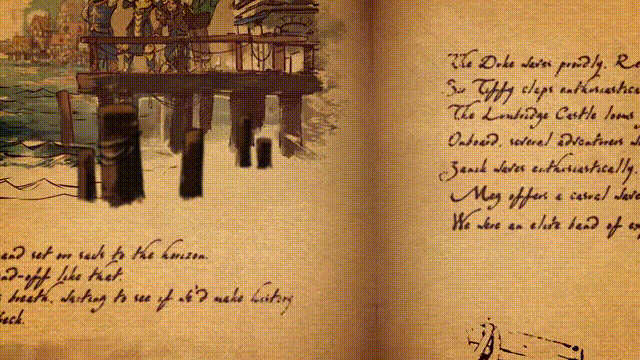 and set our sails to the horizon.
nd-off like that
s breath, waiting to see if we'd make history
beck.
The Duke waves proudly. Re
Sir Tiffy claps enthusiastica
The Lumbridge Castle looms
Onboard, several adventurers w
Zanik waves enthusiastically.
Meg offers a casual wave
We were an elite band of ex